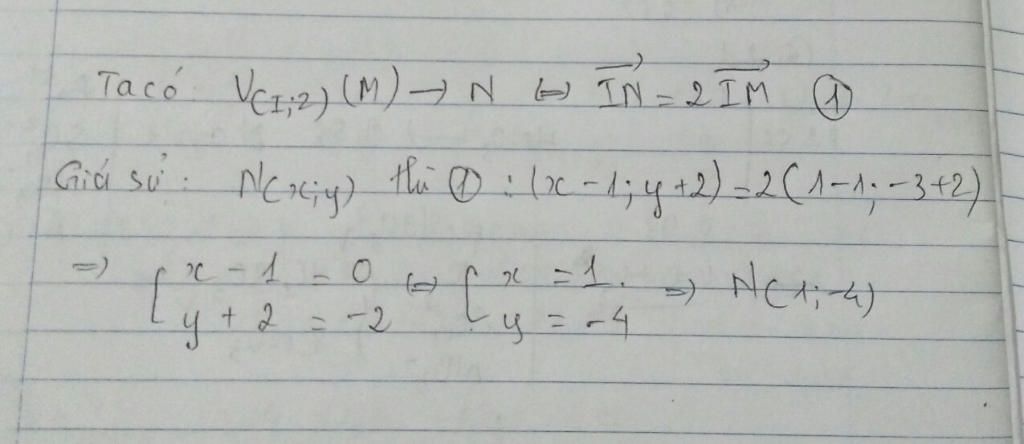 Ta có V(I;2) (M) → N ⇔ IN = 2 IM ①
Giả sử: N(x;y) thì ① : (x - 1; y + 2) = 2(1-1; -3+2)
=> { x - 1 = 0 ⇔ { x = 1. => N(1;-4)
y + 2 = -2 y = -4